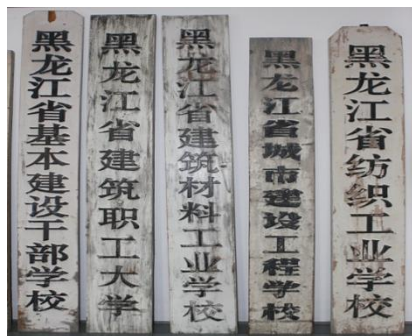 黑龙江省基本建设干部学校
黑龙江省建筑职工大学
黑龙江省建筑材料工业学校
黑龙江省城市建设工程学校
黑龙江省纺织工业学校